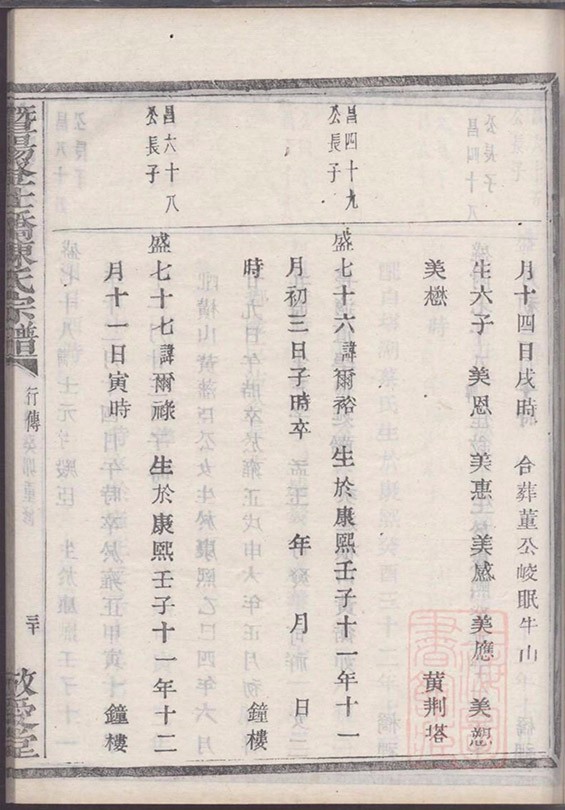 月十四日戌時 合葬董公崚眠牛山
生六子 美恩 美惠 美感 美應 美恕
美懋 黄荆塔
昌四十九
公長子
盛七十六諱爾裕 生於康熙壬子十一年十一
月初三日子時卒 年 月 日
時 鐘樓
昌六十八
公長子
盛七十七諱爾祿 生於康熙壬子十一年十二
月十一日寅時 鐘樓
陳氏宗譜
行傳
敬愛堂